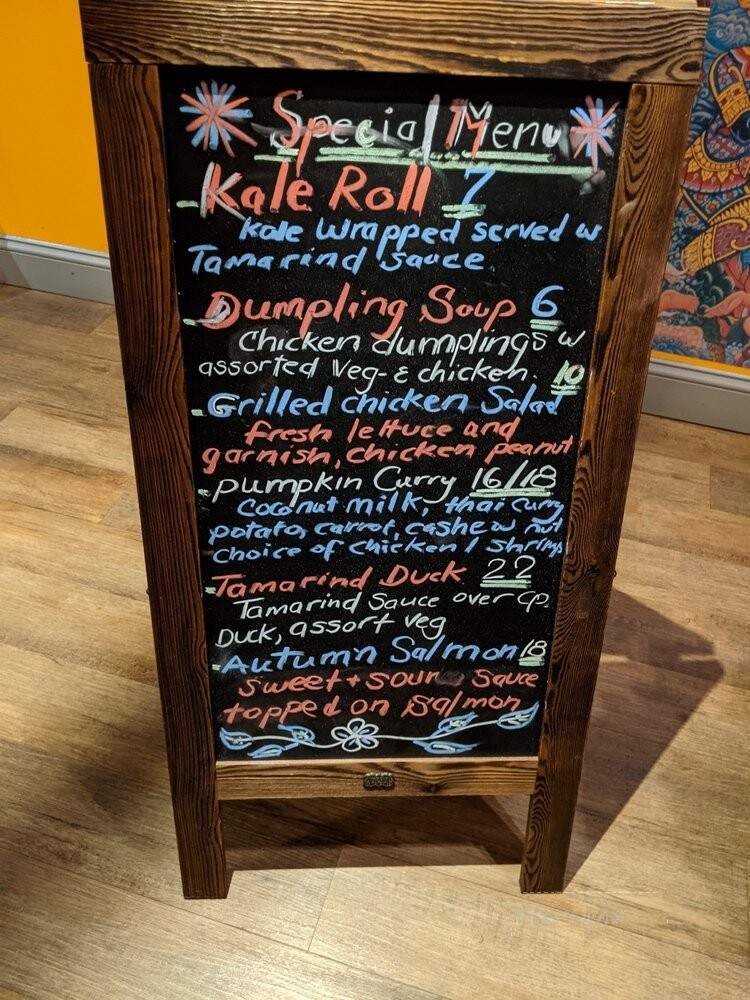 Special Menu
Kale Roll 7
Kale wrapped served w
Tamarind sauce
Dumpling Soup 6
Chicken dumplings w
assorted Veg & chicken. 10
Grilled chicken Salad
fresh lettuce and
garnish, chicken peanut
pumpkin Curry 16/18
Coconut milk, thai curry
potato, carrot, cashew nut
choice of chicken / shrimp
Tamarind Duck 22
Tamarind Sauce over
Duck, assort veg
Autumn Salmon 18
Sweet + sour Sauce
topped on Salmon